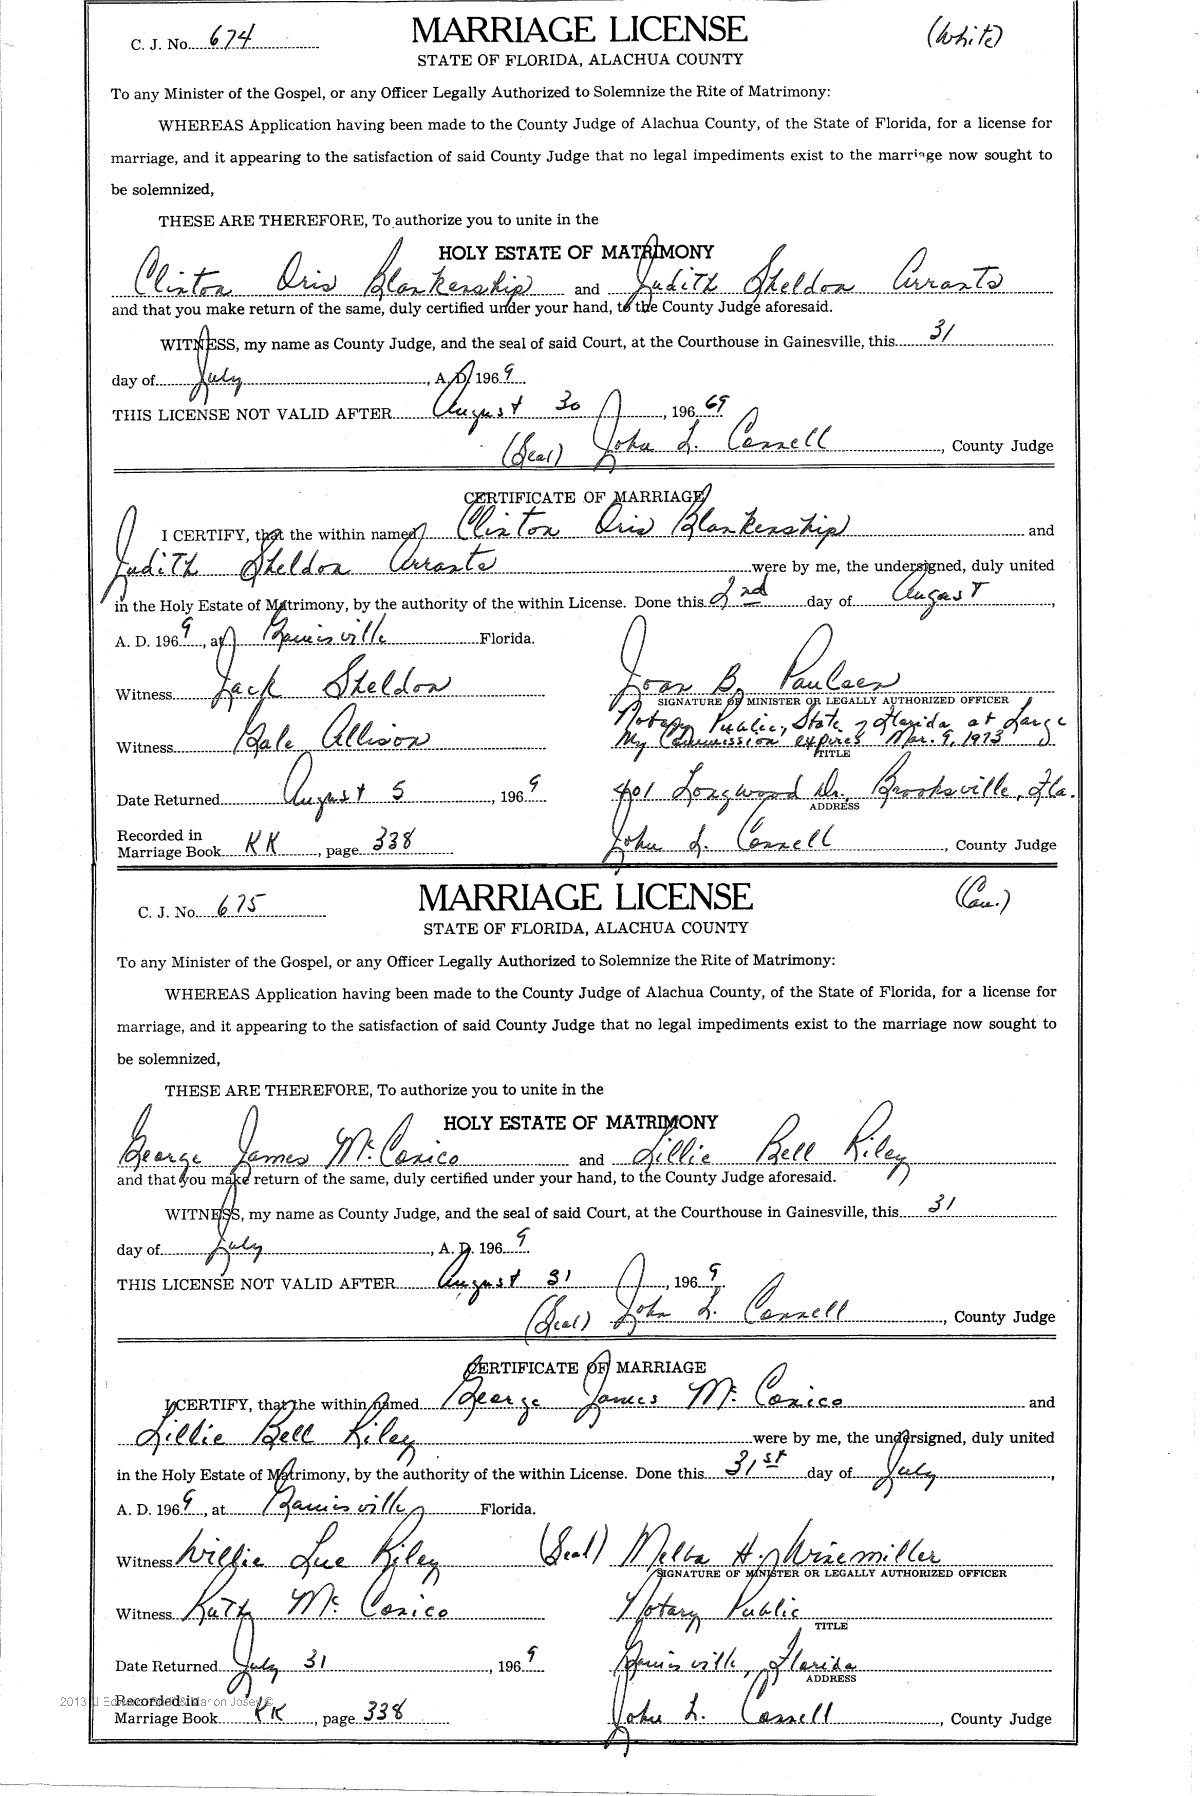 C. J. No. 674 MARRIAGE LICENSE (White)
STATE OF FLORIDA, ALACHUA COUNTY
To any Minister of the Gospel, or any Officer Legally Authorized to Solemnize the Rite of Matrimony:
WHEREAS Application having been made to the County Judge of Alachua County, of the State of Florida, for a license for
marriage, and it appearing to the satisfaction of said County Judge that no legal impediments exist to the marriage now sought to
be solemnized,
THESE ARE THEREFORE, To authorize you to unite in the
HOLY ESTATE OF MATRIMONY
Clinton Oris Blankenship and Judith Sheldon Arrants
and that you make return of the same, duly certified under your hand, to the County Judge aforesaid.
WITNESS, my name as County Judge, and the seal of said Court, at the Courthouse in Gainesville, this 31
day of July, A. D. 1969
THIS LICENSE NOT VALID AFTER August 30, 196 69
(Seal) John L. Connell, County Judge
CERTIFICATE OF MARRIAGE
I CERTIFY, that the within named Clinton Oris Blankenship and
Judith Sheldon Arrants were by me, the undersigned, duly united
in the Holy Estate of Matrimony, by the authority of the within License. Done this 2nd day of August,
A. D. 1969, at Gainesville Florida.
Witness Jack Sheldon Joan B. Paulsen
SIGNATURE OF MINISTER OR LEGALLY AUTHORIZED OFFICER
Notary Public, State of Florida at Large
Witness Gale Allison My Commission expires Mar. 9, 1973
TITLE
Date Returned August 5, 1969 401 Longwood Dr., Brooksville, Fla.
ADDRESS
Recorded in
Marriage Book KK, page 338 John L. Connell, County Judge
C. J. No. 675 MARRIAGE LICENSE (Cau.)
STATE OF FLORIDA, ALACHUA COUNTY
To any Minister of the Gospel, or any Officer Legally Authorized to Solemnize the Rite of Matrimony:
WHEREAS Application having been made to the County Judge of Alachua County, of the State of Florida, for a license for
marriage, and it appearing to the satisfaction of said County Judge that no legal impediments exist to the marriage now sought to
be solemnized,
THESE ARE THEREFORE, To authorize you to unite in the
HOLY ESTATE OF MATRIMONY
George James McConico and Lillie Bell Riley
and that you make return of the same, duly certified under your hand, to the County Judge aforesaid.
WITNESS, my name as County Judge, and the seal of said Court, at the Courthouse in Gainesville, this 31
day of July, A. D. 1969
THIS LICENSE NOT VALID AFTER August 31, 1969
(Seal) John L. Connell, County Judge
CERTIFICATE OF MARRIAGE
I CERTIFY, that the within named George James McConico and
Lillie Bell Riley were by me, the undersigned, duly united
in the Holy Estate of Matrimony, by the authority of the within License. Done this 31st day of July,
A. D. 1969, at Gainesville Florida.
Witness Willie Lue Riley (Seal) Melba H. Winemiller
SIGNATURE OF MINISTER OR LEGALLY AUTHORIZED OFFICER
Witness Ruth McConico Notary Public
TITLE
Date Returned July 31, 1969 Gainesville, Florida
ADDRESS
2013 Recorded in
Marriage Book KK, page 338 John L. Connell, County Judge